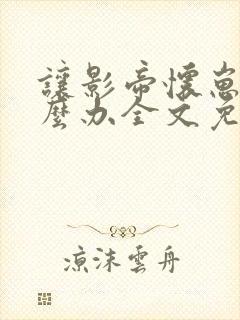 讓影帝懷崽
麼办全文免
涼沫雲舟